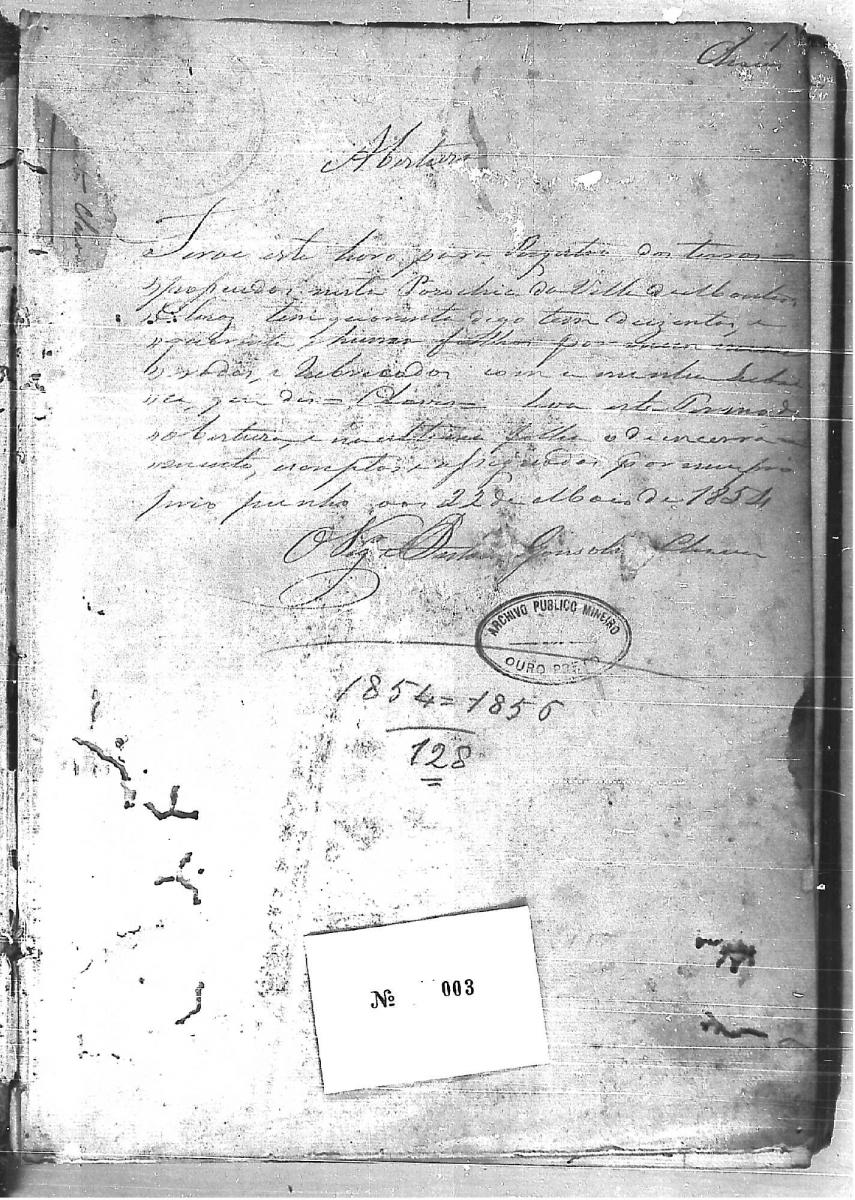 1
Chaves
Abertura
Serve este livro para Registro das terras
possuidas nesta Parochia da Villa de Montes
Claros tem quarenta digo tem duzentas e
quarenta e humas folhas por mim nume
radas, e rubricadas com a minha rubri
ca, que diz = Chaves = leva este Termo de
abertura, e na ultima folha o de encerra
mento, escriptos e assignados por meu pro
prio punho aos 22 de Maio de 1854
O Vigº Gonsalves Chaves
ARCHIVO PUBLICO MINEIRO
OURO PRETO
1854=1856
128
Nº 003